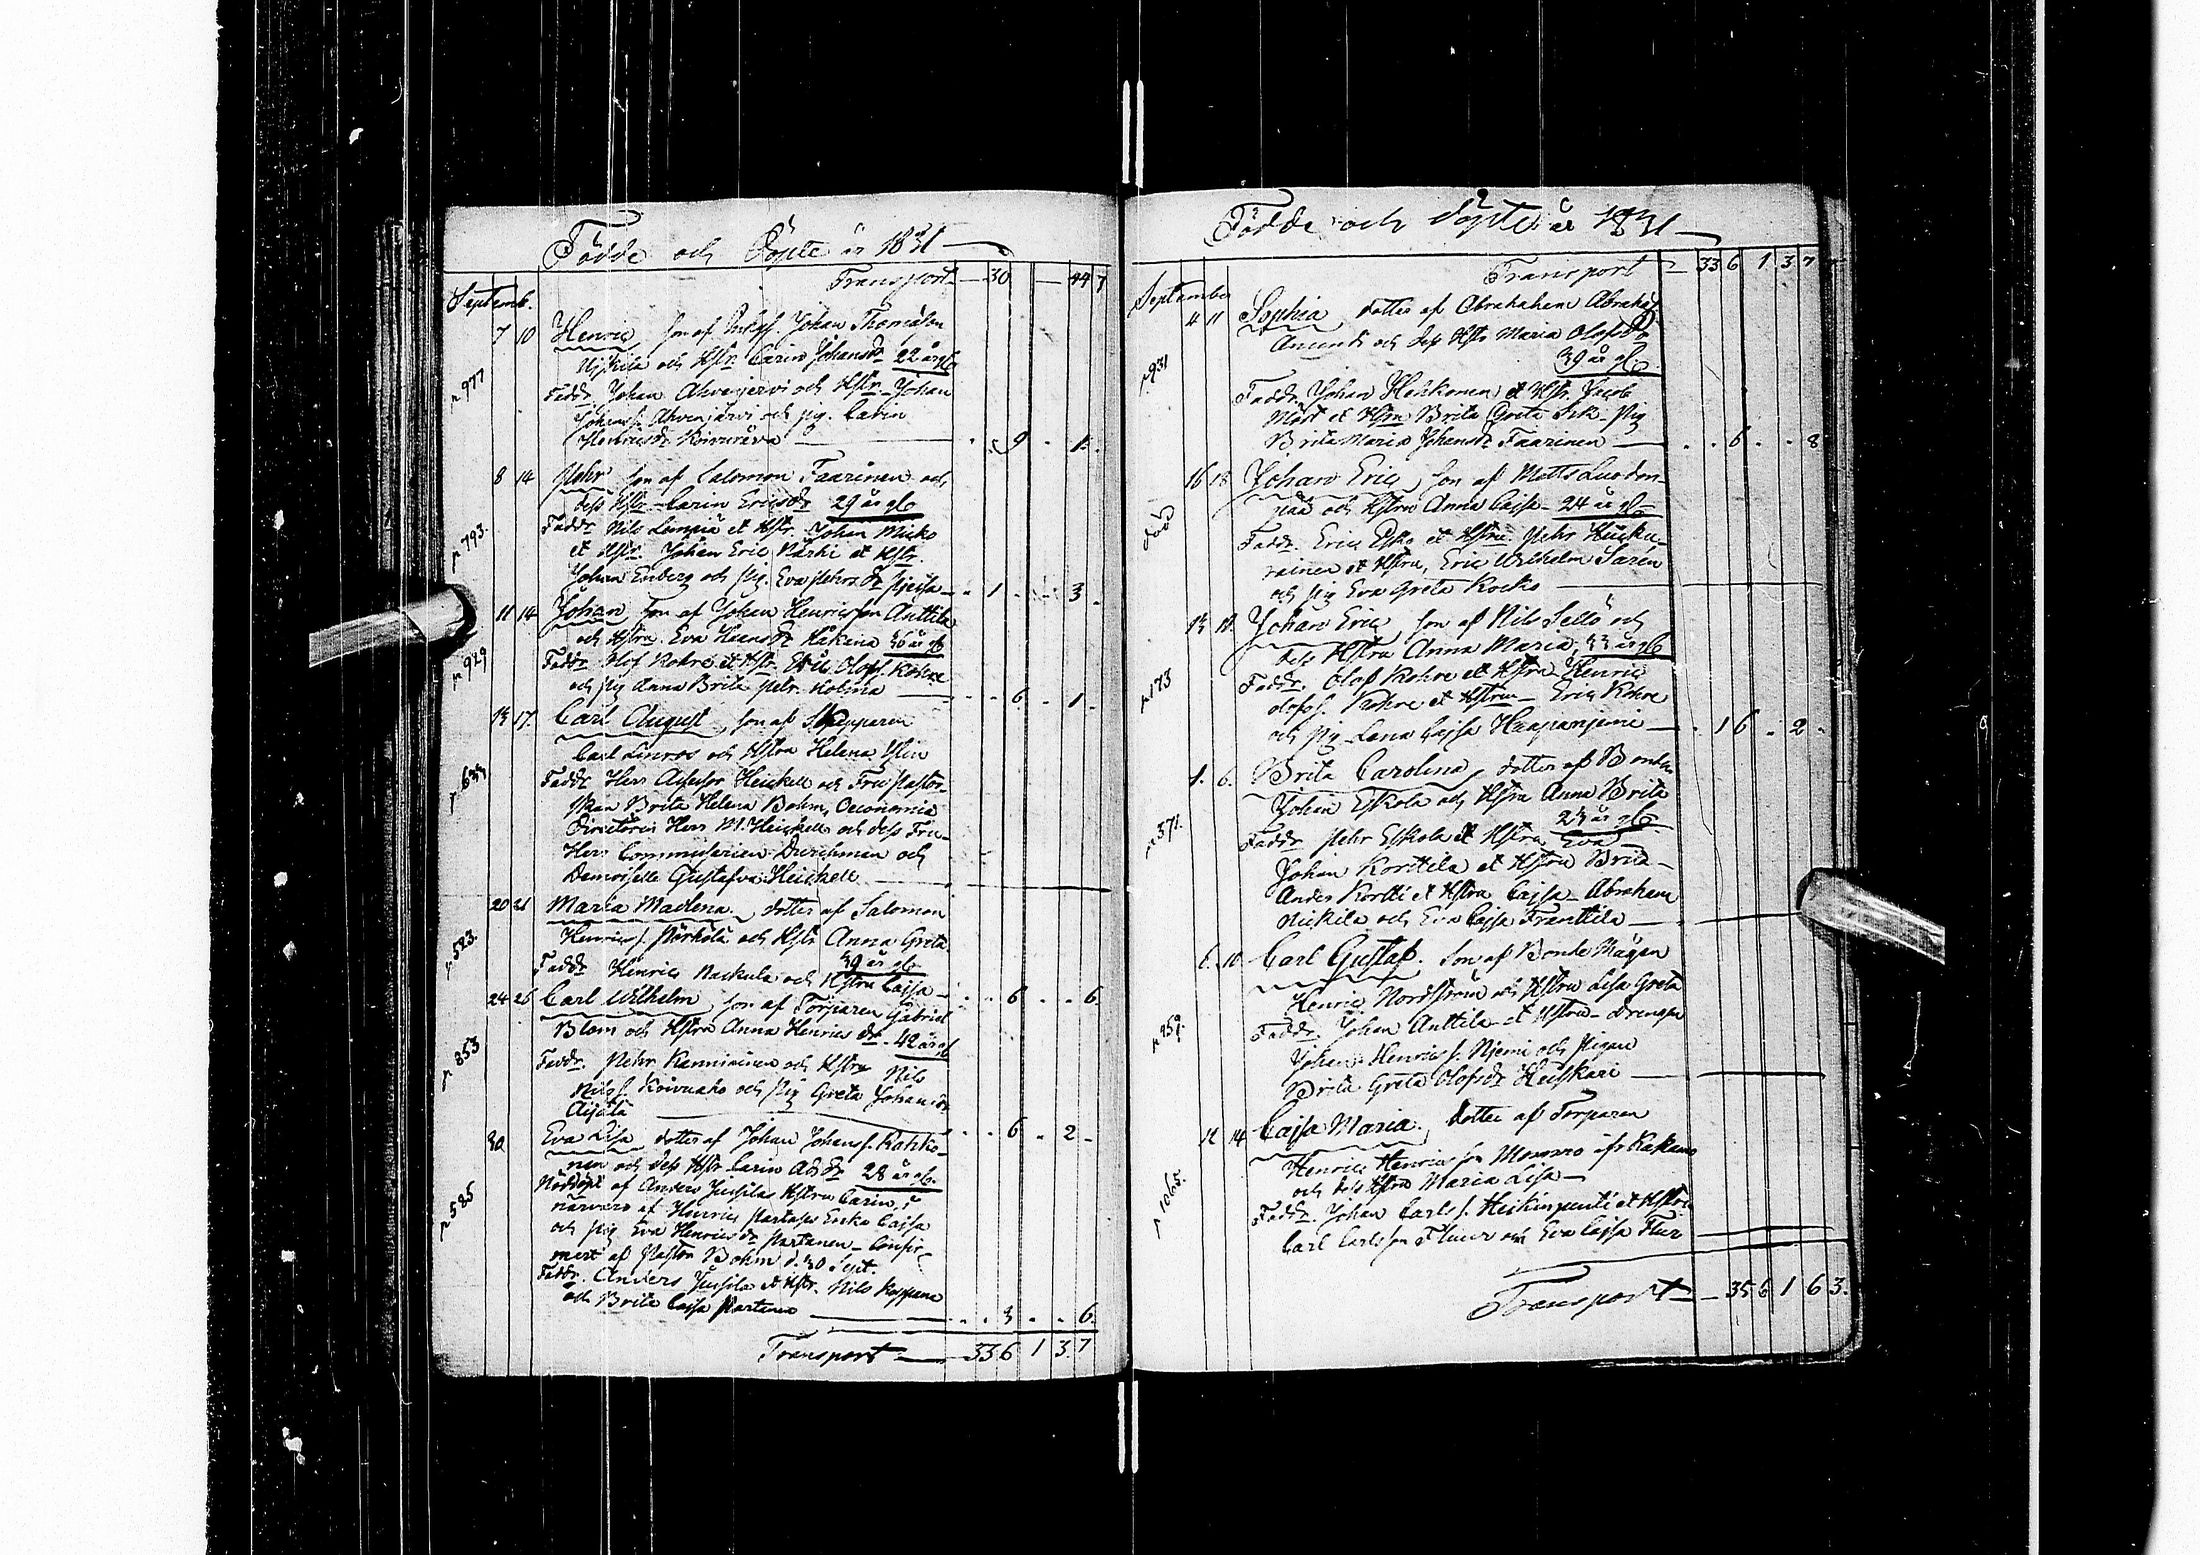 Födde och Döpte år 1831
Transport 30 44 7
Septemb.
7 10 Henric son af Johan Thomasson
och Hstr Carin Johansdr 22 år gl
p 977 Faddr Johan Ahvenjervi och Hstr Johan
Johanss. Ahvenjärvi och pig. Carin
Henricsdr Koivurova 9 1
8 14 Pehr son af Salomon Faarinen och
dess Hstr Carin Ericsdr 29 år gl
p 793. Faddr Nils Lampia et Hstr. Johan Micko
et Hstr. Johan Eric Närhi et Hstr.
Johan Enberg och pig. Eva Pehrsdr 1 3
11 14 Johan son af Johan Henricsson Anttila
och Hstru Eva Hansdr Häkänä 36 år gl
p 929 Faddr Olof Kohre et Hstr. Olofs. Kohre
och pig Anna Brita Pehr. 6 1
13 17. Carl August, son af
Carl Linros och Hstru Helena
p 633 Faddr Herr Assessor Heickell och Fru Pastor-
skan Brita Helena Bohm, Oeconomie
Directören Herr M. Heickell och dess Fru
Herr Commissarien Durchman och
Demoiselle Gustafva Heickell
20 21 Maria Madlena dotter af Salomon
Henrics. Pörhölä och Hstr Anna Greta
39 år gl
p 523. Faddr Henric Nackula och Hstru Cajsa 6 6
24 26 Carl Wilhelm son af Torparen Gabriel
Blom och Hstru Anna Henricsdr 42 år gl
p 853 Faddr. Pehr Kanniainen och Hstru Nils
Nilss. Koivuaho och pig Greta Johansdr
Äijälä 6 2
30 Eva Lisa dotter af Johan Johanss. Kahko-
nen och dess Hstr Carin Adsdr 28 år gl.
p 585 Nöddöpt af Anders Jussilas Hstru Carin, i
närvaro af Henric Partases Encka Cajsa
och pig Eva Henricsdr Partanen Confir-
merat af Pastor Bohm d. 30 Sept.
Faddr. Anders Jussila et Hstr. Nils
och Brita Cajsa Partanen 3 6
Transport 33 6 1 3 7
Födde och Döpte år 1831
Transport 33 6 1 3 7
September
4 11 Sophia dotter af Abrahahem Abrahs.
Anunds och dess Hstr Maria Olofsdr
39 år gl.
p 931 Faddr. Johan Heikkonen et Hstr. Jacob
Möst et Hstru Brita Greta pig
Brita Maria Johansdr Faarinen 6 8
16 18 Johan Eric son af Matts Luodon-
pää och Hstru Anna Cajsa 24 år gl
död Faddr. Eric et Hstru Pehr
rainen et Hstru, Eric Wilhelm Sarén
och pig Eva Greta Kocko
13 18. Johan Eric son af Nils Sellö och
dess Hstru Anna Maria, 33 år gl
p 173 Faddr. Olof Kohre et Hstru Henric
Olofss. Kohre et Hstru Eric Kohre
och pig Lena Cajsa Haapaniemi 1 6 2
1. 6. Brita Carolina, dotter af Bonden
Johan Eskola och Hstru Anna Brita
23 år gl
p 371. Faddr Pehr Eskola et Hstru Eva
Johan Korttila et Hstru Brita
Anders Kortti et Hstru Cajsa Abraham
Nickila och Eva Cajsa Franttila
6. 10 Carl Gustaf. son af Bonde Mågen
Henric Nordström och Hstru Lisa Greta
p 959. Faddr. Johan Anttila et Hstru Drengen
Johan Henrics. Niemi och Pigan
Brita Greta Olofsdr Heiskari
12 14 Cajsa Maria. dotter af Torparen
Henric Henricsson
och dess Hstru Maria Lisa
p 1065. Faddr. Johan Carls s. Heikinpentti et Hstru
Carl Carlsson Fluur och Eva Cajsa Flur
Transport 35 6 1 6 3.